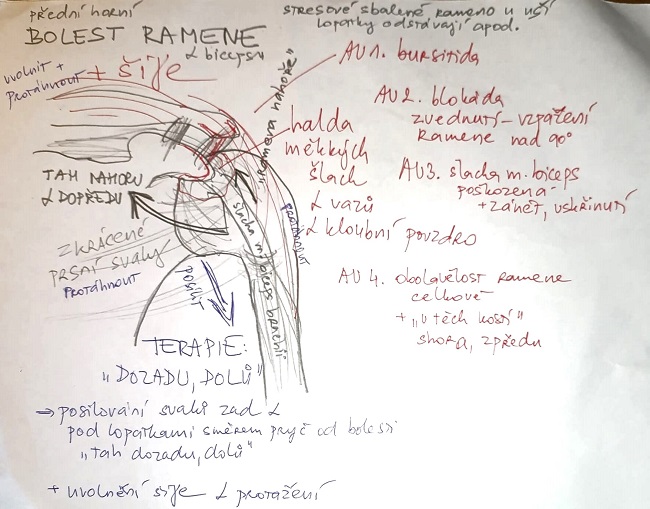 přední horní
BOLEST RAMENE
& bicepsu
+ šíje
uvolnit +
PROTÁHNOUT
stresové sbalené rameno u uší
lopatky odstávají apod.
AU1. bursitida
AU2. blokáda
zvednutí - vzpažení
Ramene nad 90°
AU3. šlacha m. biceps
poškozená
+ zánět, uskřinutí
AU 4. obolavělost ramene
celkově
+ "v těch kostí"
shora, zpředu
"Ramena nahoře"
halda
měkkých
šlach
& vazů
& kloubní pouzdro
TAH NAHORU
& DOPŘEDU
ZKRÁCENÉ
PRSNÍ SVALY
PROTÁHNOUT
šlacha m. biceps brachii
PROTÁHNOUT
POSÍLIT
TERAPIE:
"DOZADU, DOLŮ"
→ posilování svalů zad &
pod lopatkami směrem pryč od bolesti
"tah dozadu, dolů"
+ uvolnění šíje & protažení